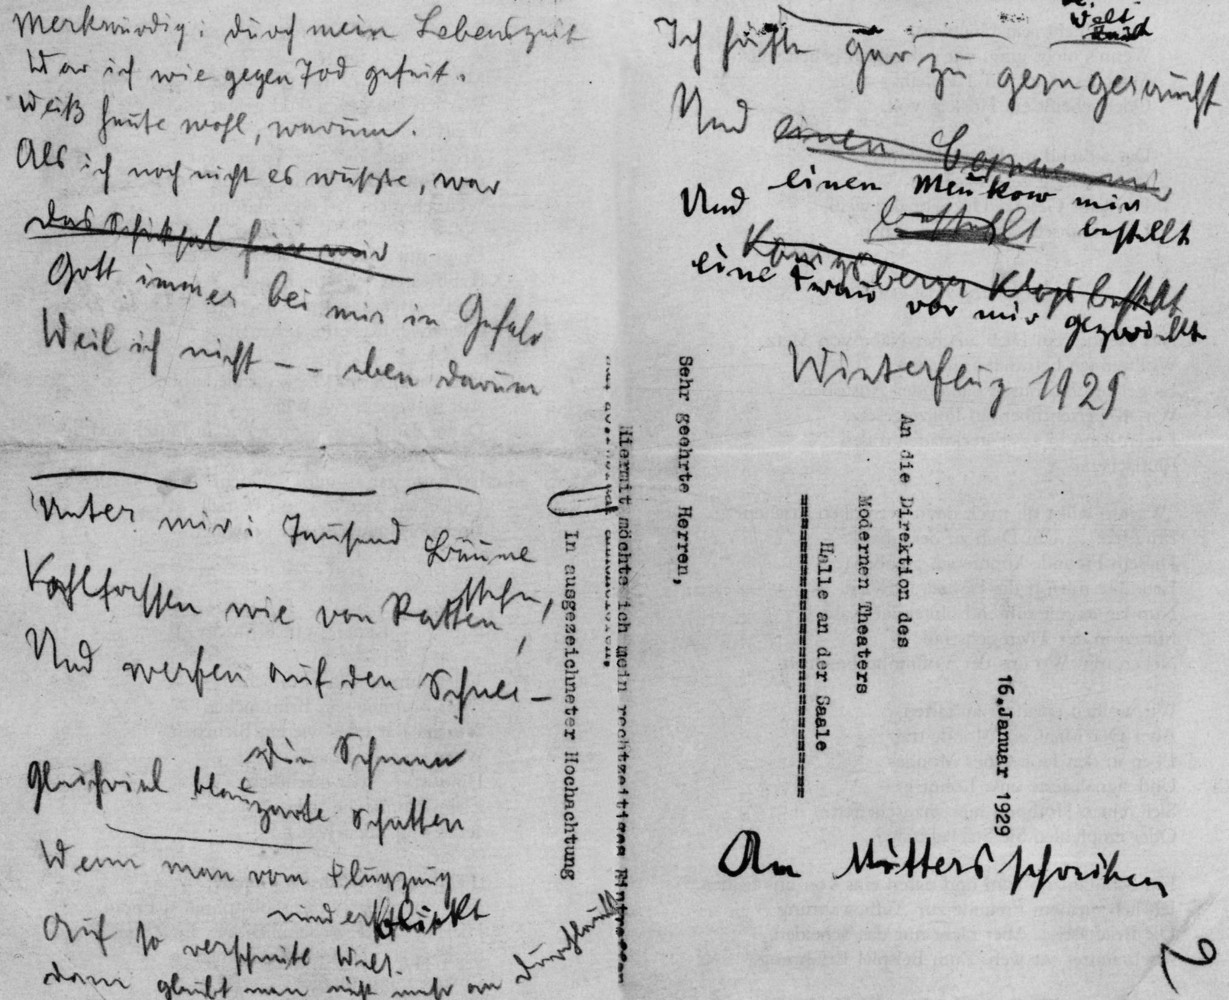 Merkwürdig: durch meine Lebenszeit
War ich wie gegen Tod gefeit.
Weiß heute wohl, warum.
Als ich noch nicht es wußte, war
das Schicksal
Gott immer bei mir in Gefahr
Weil ich nicht -- eben darum
Unter mir: Tausend Bäume
stehn,
wie von Ratten
Und werfen auf den Schnee-
Die Schemen
Gleichviel blauzarte Schatten
Wenn man vom Flugzeug
niederblickt
Auf so verschneite Welt.
dann glaubt man nicht mehr an
Ich hätte gar zu gern geraucht
Und einen
einen Meukow mir
Und bestellt bestellt
Königsberger Klops bestellt
eine Frau vor mir gezwickt
Winterflug 1929
An die Direktion des
Modernen Theaters
Halle an der Saale
16.Januar 1929
Sehr geehrte Herren,
Hiermit möchte ich mein rechtzeitiges Eintreffen
In ausgezeichneter Hochachtung
An Mutters schreiben